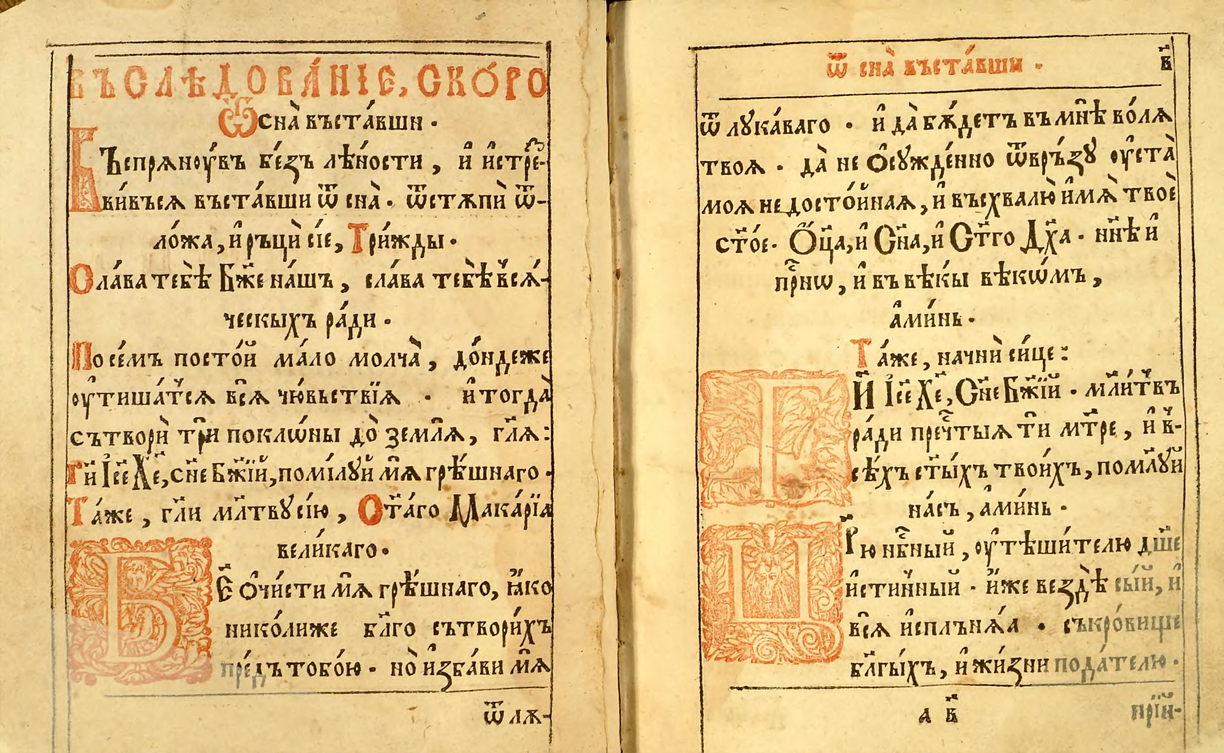 ВЪСЛѢДОВА́НІЕ, СКО́РО
Ѿ сна̀ въста́вши ·
Въспрянꙋ́въ бе́зъ лѣ́ности , и҆ и҆стре-
ви́вься въста́вши ѿ сна̀ · ѿстѫпѝ ѿ-
ло́жа, и҆ ръцѝ сіѐ, Три́жды ·
Сла́ва тебѣ̀ Бж҃е на́шъ , сла́ва тебѣ̀ всѧ́-
ческыхъ ра́ди ·
По се́мъ посто́й ма́ло молча̀ , до́ндеже
ᲂу҆тиша́тсѧ всѧ̀ чю́вьствїѧ · и҆ тогда̀
сътворѝ трѝ покло́ны до̀ землѧ̀ , гл҃ѧ:
Гі҃й Іс҃е Хе҃, сн҃е Бж҃їй, поми́лꙋй мѧ̀ грѣ́шнаго ·
Та́же , гл҃и мл҃твꙋ сію̀ , Ст҃а́го Мака́рїа
вели́каго ·
Бж҃е ѻ҆чи́сти мѧ̀ грѣ́шнаго, ꙗ҆́ко
николи́же бл҃го сътвори́хъ
пре́дъ тобо́ю · но̀ и҆зба́ви мѧ̀
ѿ лѫ-
Ѿ сна̀ въста́вши ·
в҃
ѿ лꙋка́ваго · и҆ да̀ бѫ́детъ въ мнѣ̀ во́лѧ
твоѧ̀ · да̀ не ѻ҆сꙋжде́нно ѿвръ́зꙋ ᲂу҆ста̀
моѧ̀ не досто́йнаѧ, и҆ въсхвалю̀ и҆́мѧ твоѐ
ст҃о́е · Ѻ҆ц҃а̀, и҆ Сн҃а, и҆ Ст҃го Дх҃а · нн҃ѣ и҆
прⷭ҇нѡ , и҆ въ вѣ́кы вѣкѡ́мъ ,
а҆ми́нь ·
Та́же, начнѝ си́це :
Гі҃й Іс҃е Хе҃, Сн҃е Бж҃їй · мл҃твъ
ра́ди преч҃тыѧ ти мт҃ре , и҆ в-
сѣ́хъ ст҃ы́хъ твои́хъ, поми́лꙋй
на́съ , а҆ми́нь ·
Цр҃ю нб҃ный , ᲂу҆тѣ́шителю дш҃е
и҆́стинный · и҆́же вездѣ̀ сы́й, и҆
всѧ̀ и҆сплънѧ́ѧ · съкро́вище
бл҃гы́хъ, и҆ жи́зни пода́телю ·
а в҃
прїй-